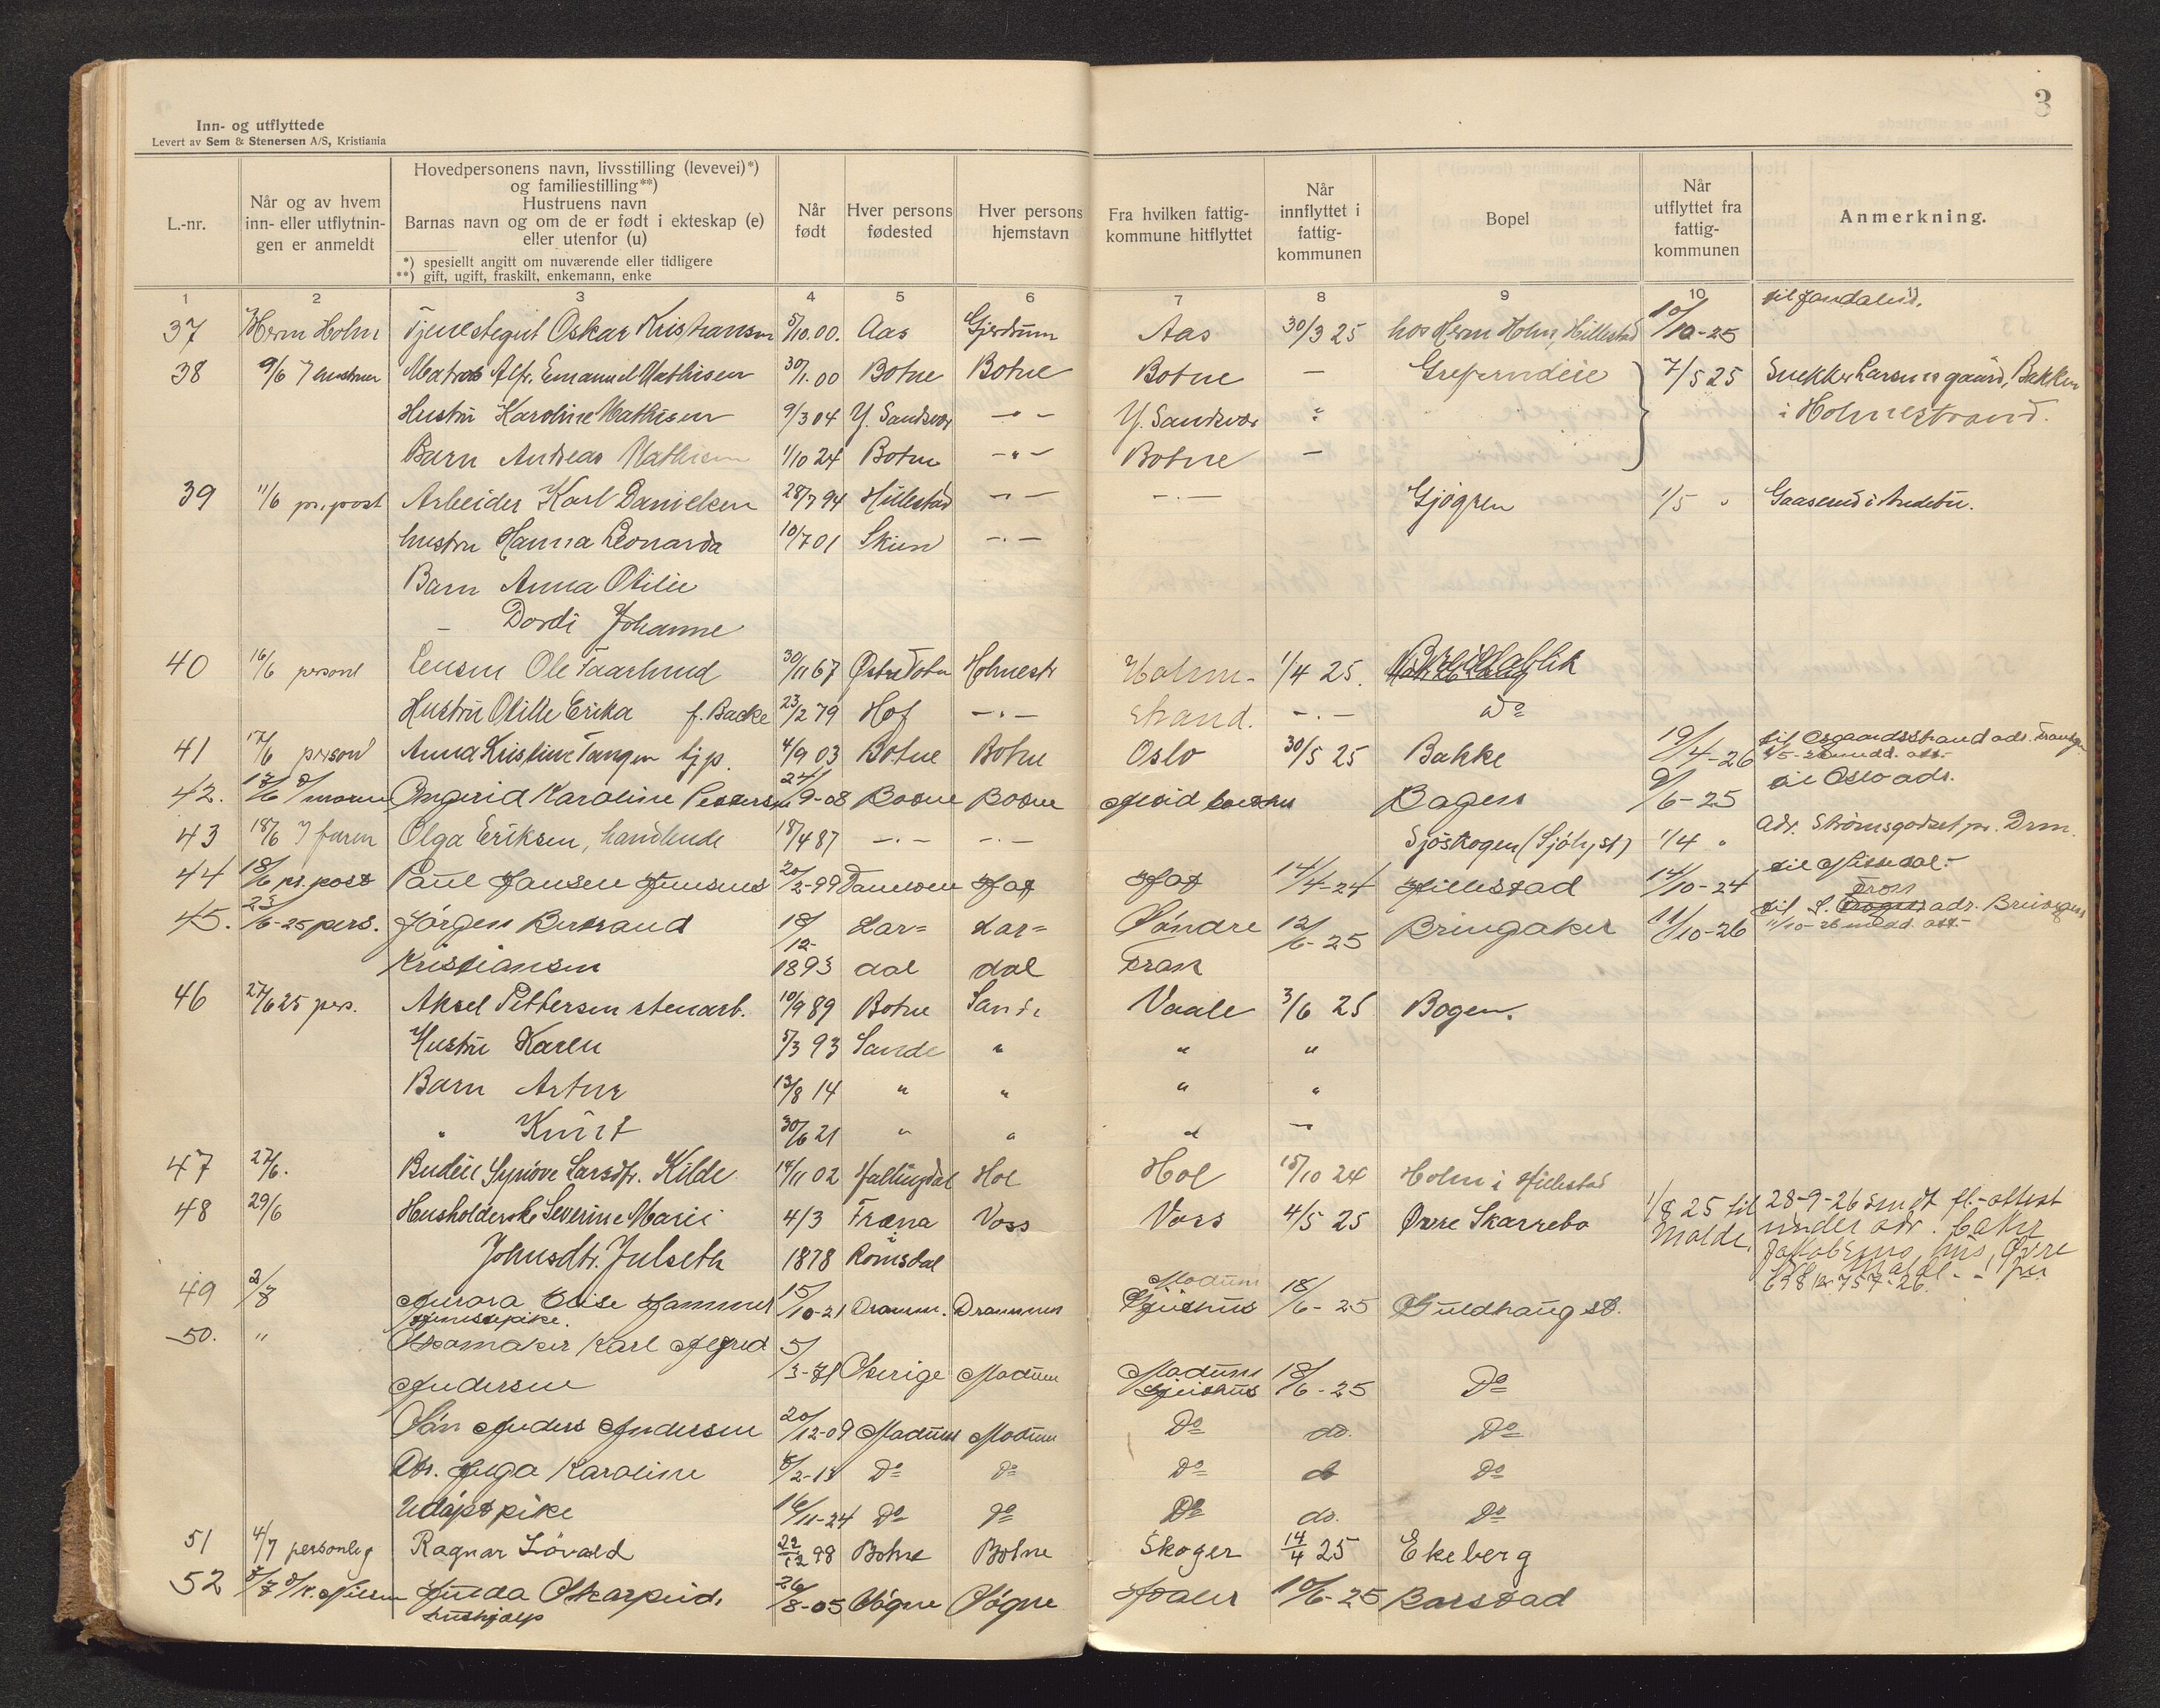 3
Inn- og utflyttede
Levert av Sem & Stenersen A/S, Kristiania
L.-nr.
Når og av hvem inn- eller utflytnin- gen er anmeldt
Hovedpersonens navn, livsstilling (levevei)*)
og familiestilling**)
Hustruens navn
Barnas navn og om de er født i ekteskap (e)
eller utenfor (u)
*) spesiellt angitt om nuværende eller tidligere
**) gift, ugift, fraskilt, enkemann, enke
Når født
Hver persons fødested
Hver persons hjemstavn
Fra hvilken fattig- kommune hitflyttet
Når innflyttet i fattig- kommunen
Bopel
Når utflyttet fra fattig- kommunen
Anmerkning.
1 2 3 4 5 6 7 8 9 10 11
37 Herm Holm Tjenestegut Oskar Kristiansen 5/10.00. Aas Gjerdrum Aas 30/3 25 hos Herm Holm, Hillestad 10/10-25
38 9/6 Matros Alfr. Emanuel Mathisen 30/1.00 Botne Botne Botne — 7/5 25 Snekker Larsens gaard, Bakken
Hustru Karoline Mathisen 9/3 04 Y. Sandsvær -"- Y. Sandsvær " i Holmestrand.
Barn Andreas Mathisen 1/10 24 Botne -"- Botne —
39 11/6 pr. post Arbeider Karl Danielsen 28/7 94 Hillestad -"- -"- 1/5 " Gaaserud i Andebu.
hustru Hanna Leonarda 10/7 01 -"-
Barn Anna Otilie
— Dordi Johanne
40 16/6 personl Ole Taarlund 30/11 67 Østre Toten Holmestr Holm- 1/4 25.
Hustru Otilie Erika f. Backe 23/2 79 Hof -"- strand. -"- Do
41 17/6 personl Anna Kristine Tangen tjp. 4/9 03 Botne Botne Oslo 30/5 25 Bakke 19/4-26 til Åsgaardsstrand adr.
42. 17/6 Ingerid Karoline Pettersen 24/9-08 Botne Botne Bagen 9/6-25 til Oslo adr.
43 18/6 Olga Eriksen, handlende 18/4 87 -"- -"- Sjöskogen (Sjöhyst) 1/4 " Adr. Strömsgodset pr. Drm.
44 18/6 pr. post Paul Hansen 20/2-99 Hof Hof 14/4-24 Hillestad 14/10-24
45. 23/6-25 pers. Jörgen Bertrand 18/12- Lar= Lar= Söndre 12/6-25 Bringaker 11/10-26
Kristiansen 1893 dal dal Fron
46 27/6 25 pers. Aksel Pettersen stenarb. 10/9 89 Botne Sande Vaale 3/6 25 Bogen.
Hustru Karen 5/3 93 Sande " " "
Barn Artur 13/8 14 " " " "
" Knut 30/6 21 " " " —
47 27/6. Budeie Synnöve Larsdtr. Kilde 14/11 02 Hallingdal Hol Hol 15/10 24 Holm i Hillestad
48 29/6 Husholderske Severine Marie 4/3 Fræna Voss Voss 4/5 25 Øvre Skarrebo 1/8 25 til Molde, 28-9-26 fl.-attest
Johnsdtr. Julseth 1878 Romsdal under adr.
49 2/7 Aurora Elise Hammer 15/10-21 Dramm. Drammen Modum 18/6-25 Guldhaug st.
50. " Skomaker Karl Alfred 5/3-71 Sverige Modum Modum 18/6-25 Do
Andersen
Sön Anders Andersen 20/12-09 Modum Modum Do do. Do
Dtr. Inga Karoline 8/2-13 Do Do Do do Do
Udöpt pike 16/11-24 Do Do Do do. Do
51 4/7 personlig Ragnar Lövald 22/12 98 Botne Botne Skoger 14/4 25 Ekeberg
52 26/8-05 Sögne Sögne 10/6-25 Barstad
hushjælp